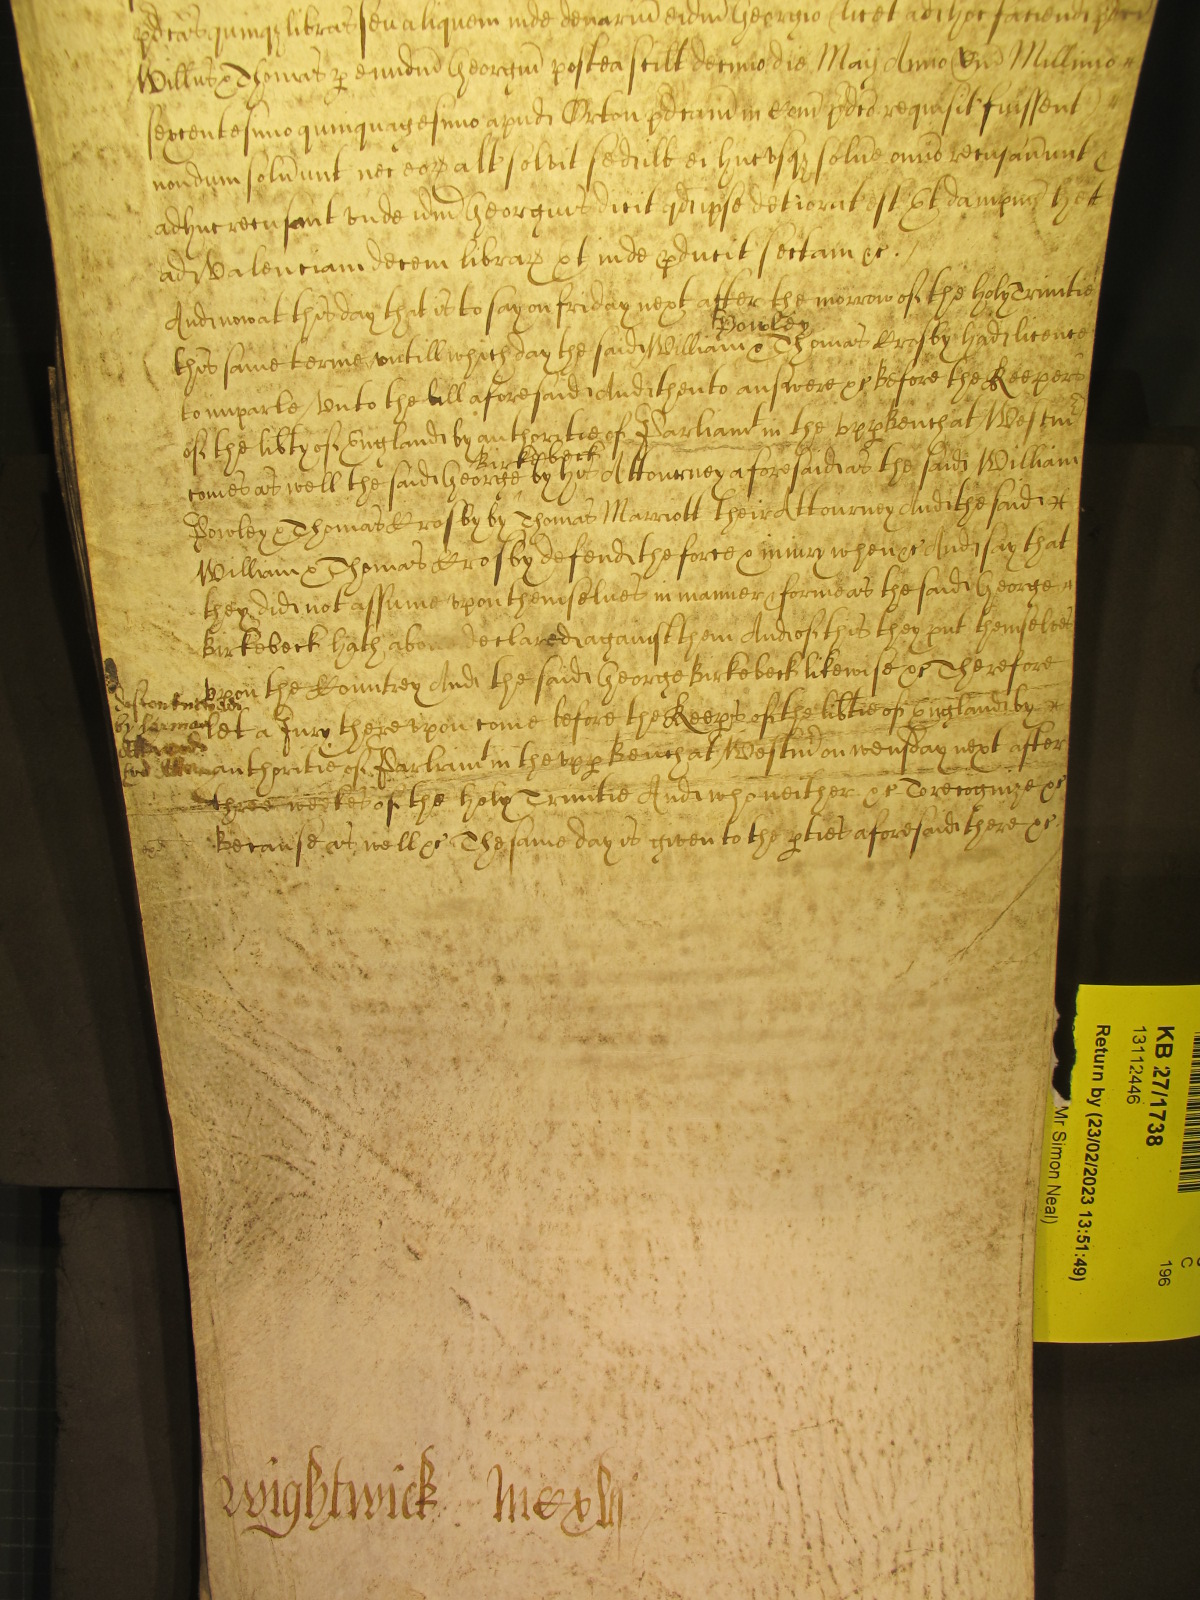 pdcas quinqz libras seu aliquem inde denariu eidm Georgio licet ad hoc faciend pdci
Willus & Thomas p eundm Georgiu postea scilt decimo die May Anno Dni Millimo
sexcentesimo quinquagesimo apud Orton pdcam in Com pdco requisit fuissent
nondum solverunt nec eorz alt solvit sed illt ei huc vsqz solve omnino recusaverunt &
adhuc recusant vnde idm Georgius dicit qd ipse deteriorat est & dampnu het
ad valenciam decem librarz Et inde pducit sectam &c.
And now at this day that is to say on friday next after the morrow of the holy Trinitie
this same terme vntill which day the said William Powley & Thomas Crosby had licence
to imparle vnto the bill aforesaid And then to answere &c Before the Keepers
of the libty of England by authoritie of Parliamt in the vpp Bench at Westmr
comes as well the said George Birkebeck by his Attourney aforesaid as the said William
Powley & Thomas Crosby by Thomas Marriott their Attourney And the said
William & Thomas Crosby defend the force & iniury when &c And say that
they did not assume vpon themselues in manner & forme as the said George
Birkebeck hath above declared against them And of this they put themselves
vpon the Countrey And the said George Birkebeck likewise &c Therefore
let a Jury there vpon come before the Keeps of the libtie of England by
authoritie of Parliamt in the vpp Bench at Westmr on wensday next after
three weekes of the holy Trinitie And who neither &c To recognize &c
Because as well &c The same day is given to the pties aforesaid there &c.
Wightwick
KB 27/1738
13112446
Return by (23/02/2023 13:51:49)
Mr Simon Neal)
C
196